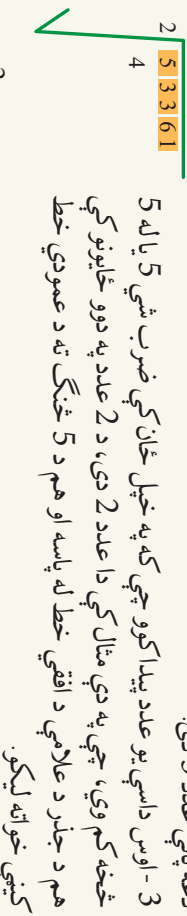 2 5 33 61
4
3 - اوس داسې يو عدد پيدا کوو چې که په خپل ځان کې ضرب شي 5 يا له 5
څخه کم وي، چې په دې مثال کې دا عدد 2 دی، د 2 عدد په دوو ځايونو کې
هم د جذر د علامې د افقي خط له پاسه او هم د 5 څنګ ته د عمودي خط
کيڼې خواته ليکو.